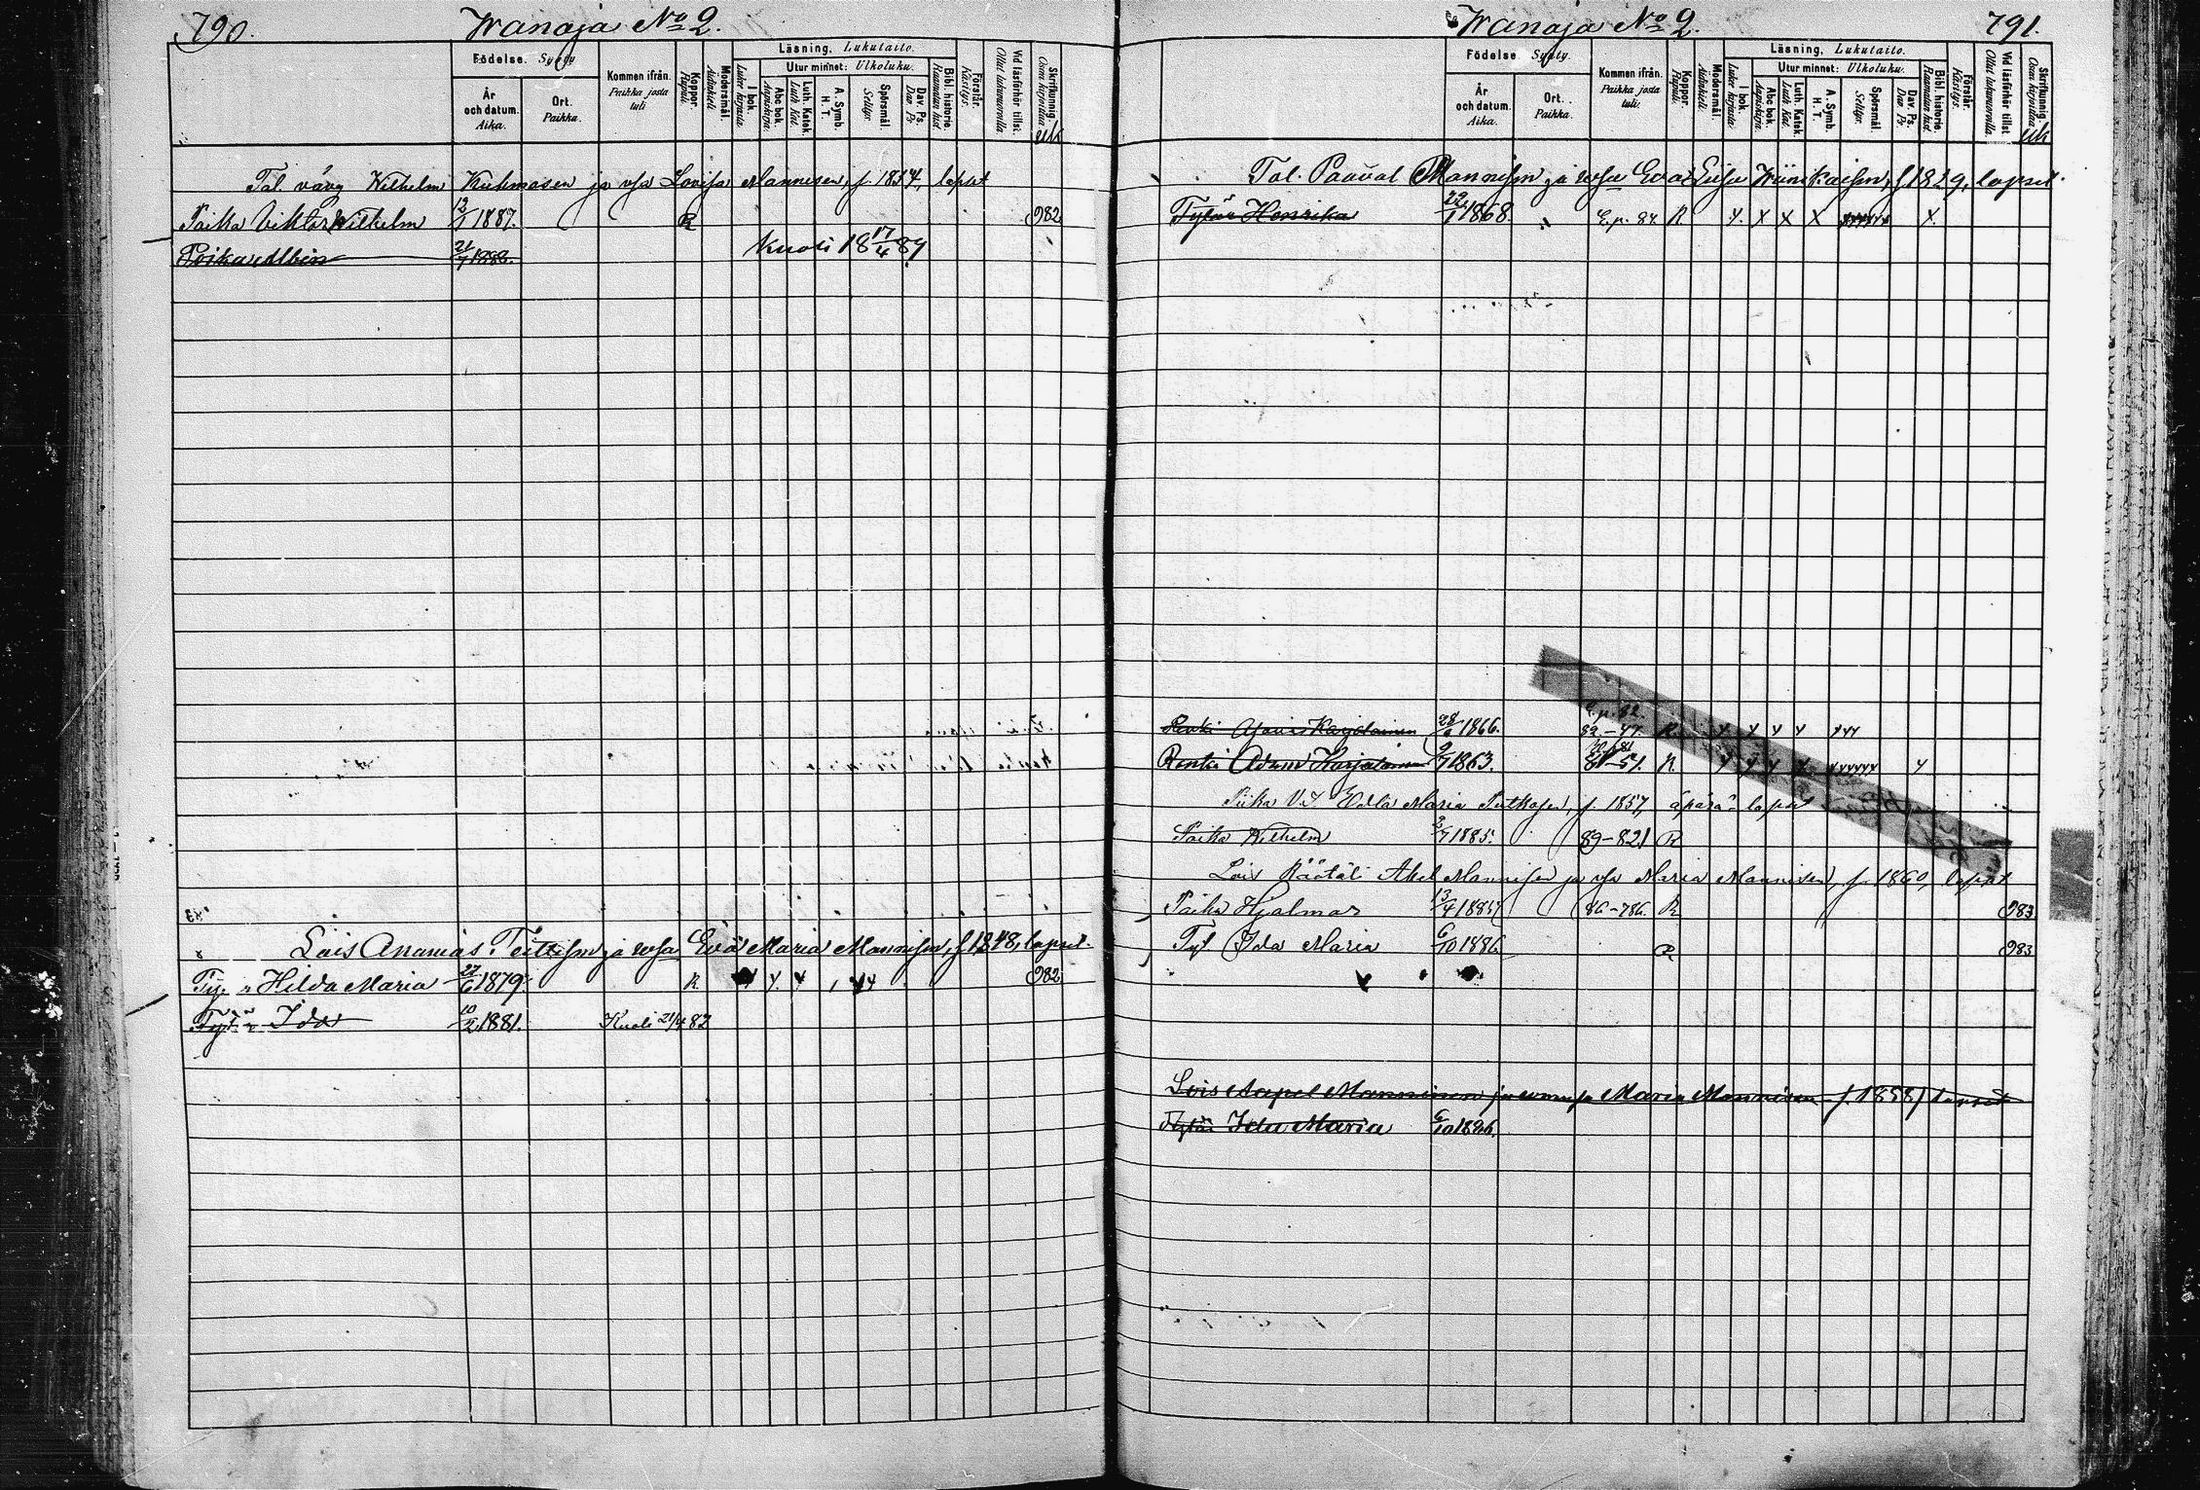 790.
Wanaja No 2.
Födelse. Synty
Kommen ifrån.
Paikka josta tuli
Koppor.
Rupuli.
Modersmål.
Äidinkieli
Läsning. Lukutaito.
Utur minnet: Ulkoluku.
År och datum.
Aika.
Ort.
Paikka.
I bok.
Lukee kirjasta
Abc bok.
Aapiskirja.
Luth. Katek.
Luth. Kat.
A. Symb. H. T.
Spörsmål
Selitys.
Dav. Ps.
Dav. Ps
Bibl. historie.
Raamatun hist.
Förstår.
Käsitys.
Vid läsförhör tillst.
Ollut lukuvuoroilla.
Skrifkunnig.
Osaa kirjoittaa
Tal. vävy Wilhelm Kuhmosen ja vsa Lovisa Mannisen, s. 1854, lapset
Poika Viktor Wilhelm 13/1 1887. R 982
Poika Albin 21/7 1888. Kuoli 18 17/4 89
Lois Ananias Teittisen ja vaımo Eva Maria Mannisen, s. 1848, lapset.
Ty. r Hilda Maria 27/6 1879. R. Y. Y 982
Tyt. r Ida 10/2 1881. Kuoli 21/4 82
Wanaja No 2.
791.
Födelse. Synty.
Kommen ifrån.
Paikka josta tuli.
Koppor.
Rupuli.
Modersmål.
Äidinkieli
Läsning, Lukutaito.
Utur minnet: Ulkoluku.
År och datum.
Aika.
Ort.
Paikka.
I bok.
Lukee kirjasta
Abc bok.
Aapiskirja.
Luth. Katek.
Luth. Kat.
A. Symb. H. T.
Spörsmål
Selitys.
Dav. Ps.
Dav. Ps
Bibl. historie.
Raamatun hist.
Förstår.
Käsitys.
Vid läsförhör tillst
Ollut lukuvuoroilla
Skrifkunnig.
Osaa kirjoittaa
Tal. Paaval Mannisen ja vaimo Eva Liisa s. 1829, lapset.
Tytär Henrika 22/1 1868. E.p. 84. R Y. X X X X.
Renki Karjalainen 28/6 1866. E.p. 82. 82-47. R Y Y Y Y YYY
Renki Adam Karjalainen 9/7 1863. 81-51. R. Y Y Y Y Y
Piika Edla Maria s. 1857, äpärä lapset
Poika Wilhelm 3/7 1885. 89-821 R
Lois Räätäli Abel Mannisen ja vsa Maria Mannisen, s. 1860, lapset
Poika Hjalmar 13/4 1885 86-786. R 983
Tyt Ida Maria 6/10 1886 R 983
Lois Aapel Manninen ja Maria Mannisen s. 1858 lapset
Tytär Ida Maria 6/10 1886.